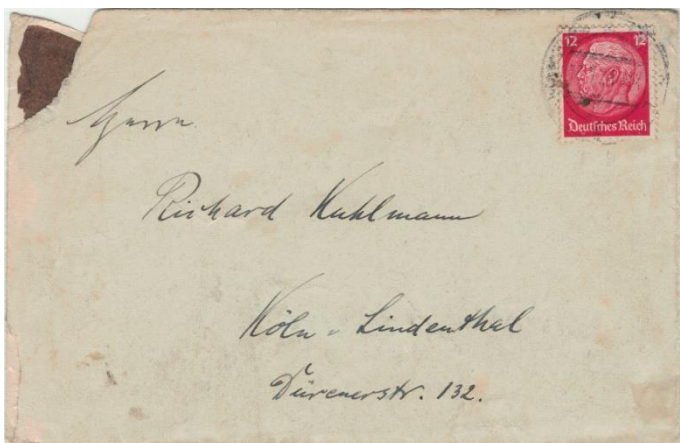 12 12
Deutsches Reich
Herrn
Richard Kuhlmann
Köln-Lindenthal
Dürenerstr. 132.